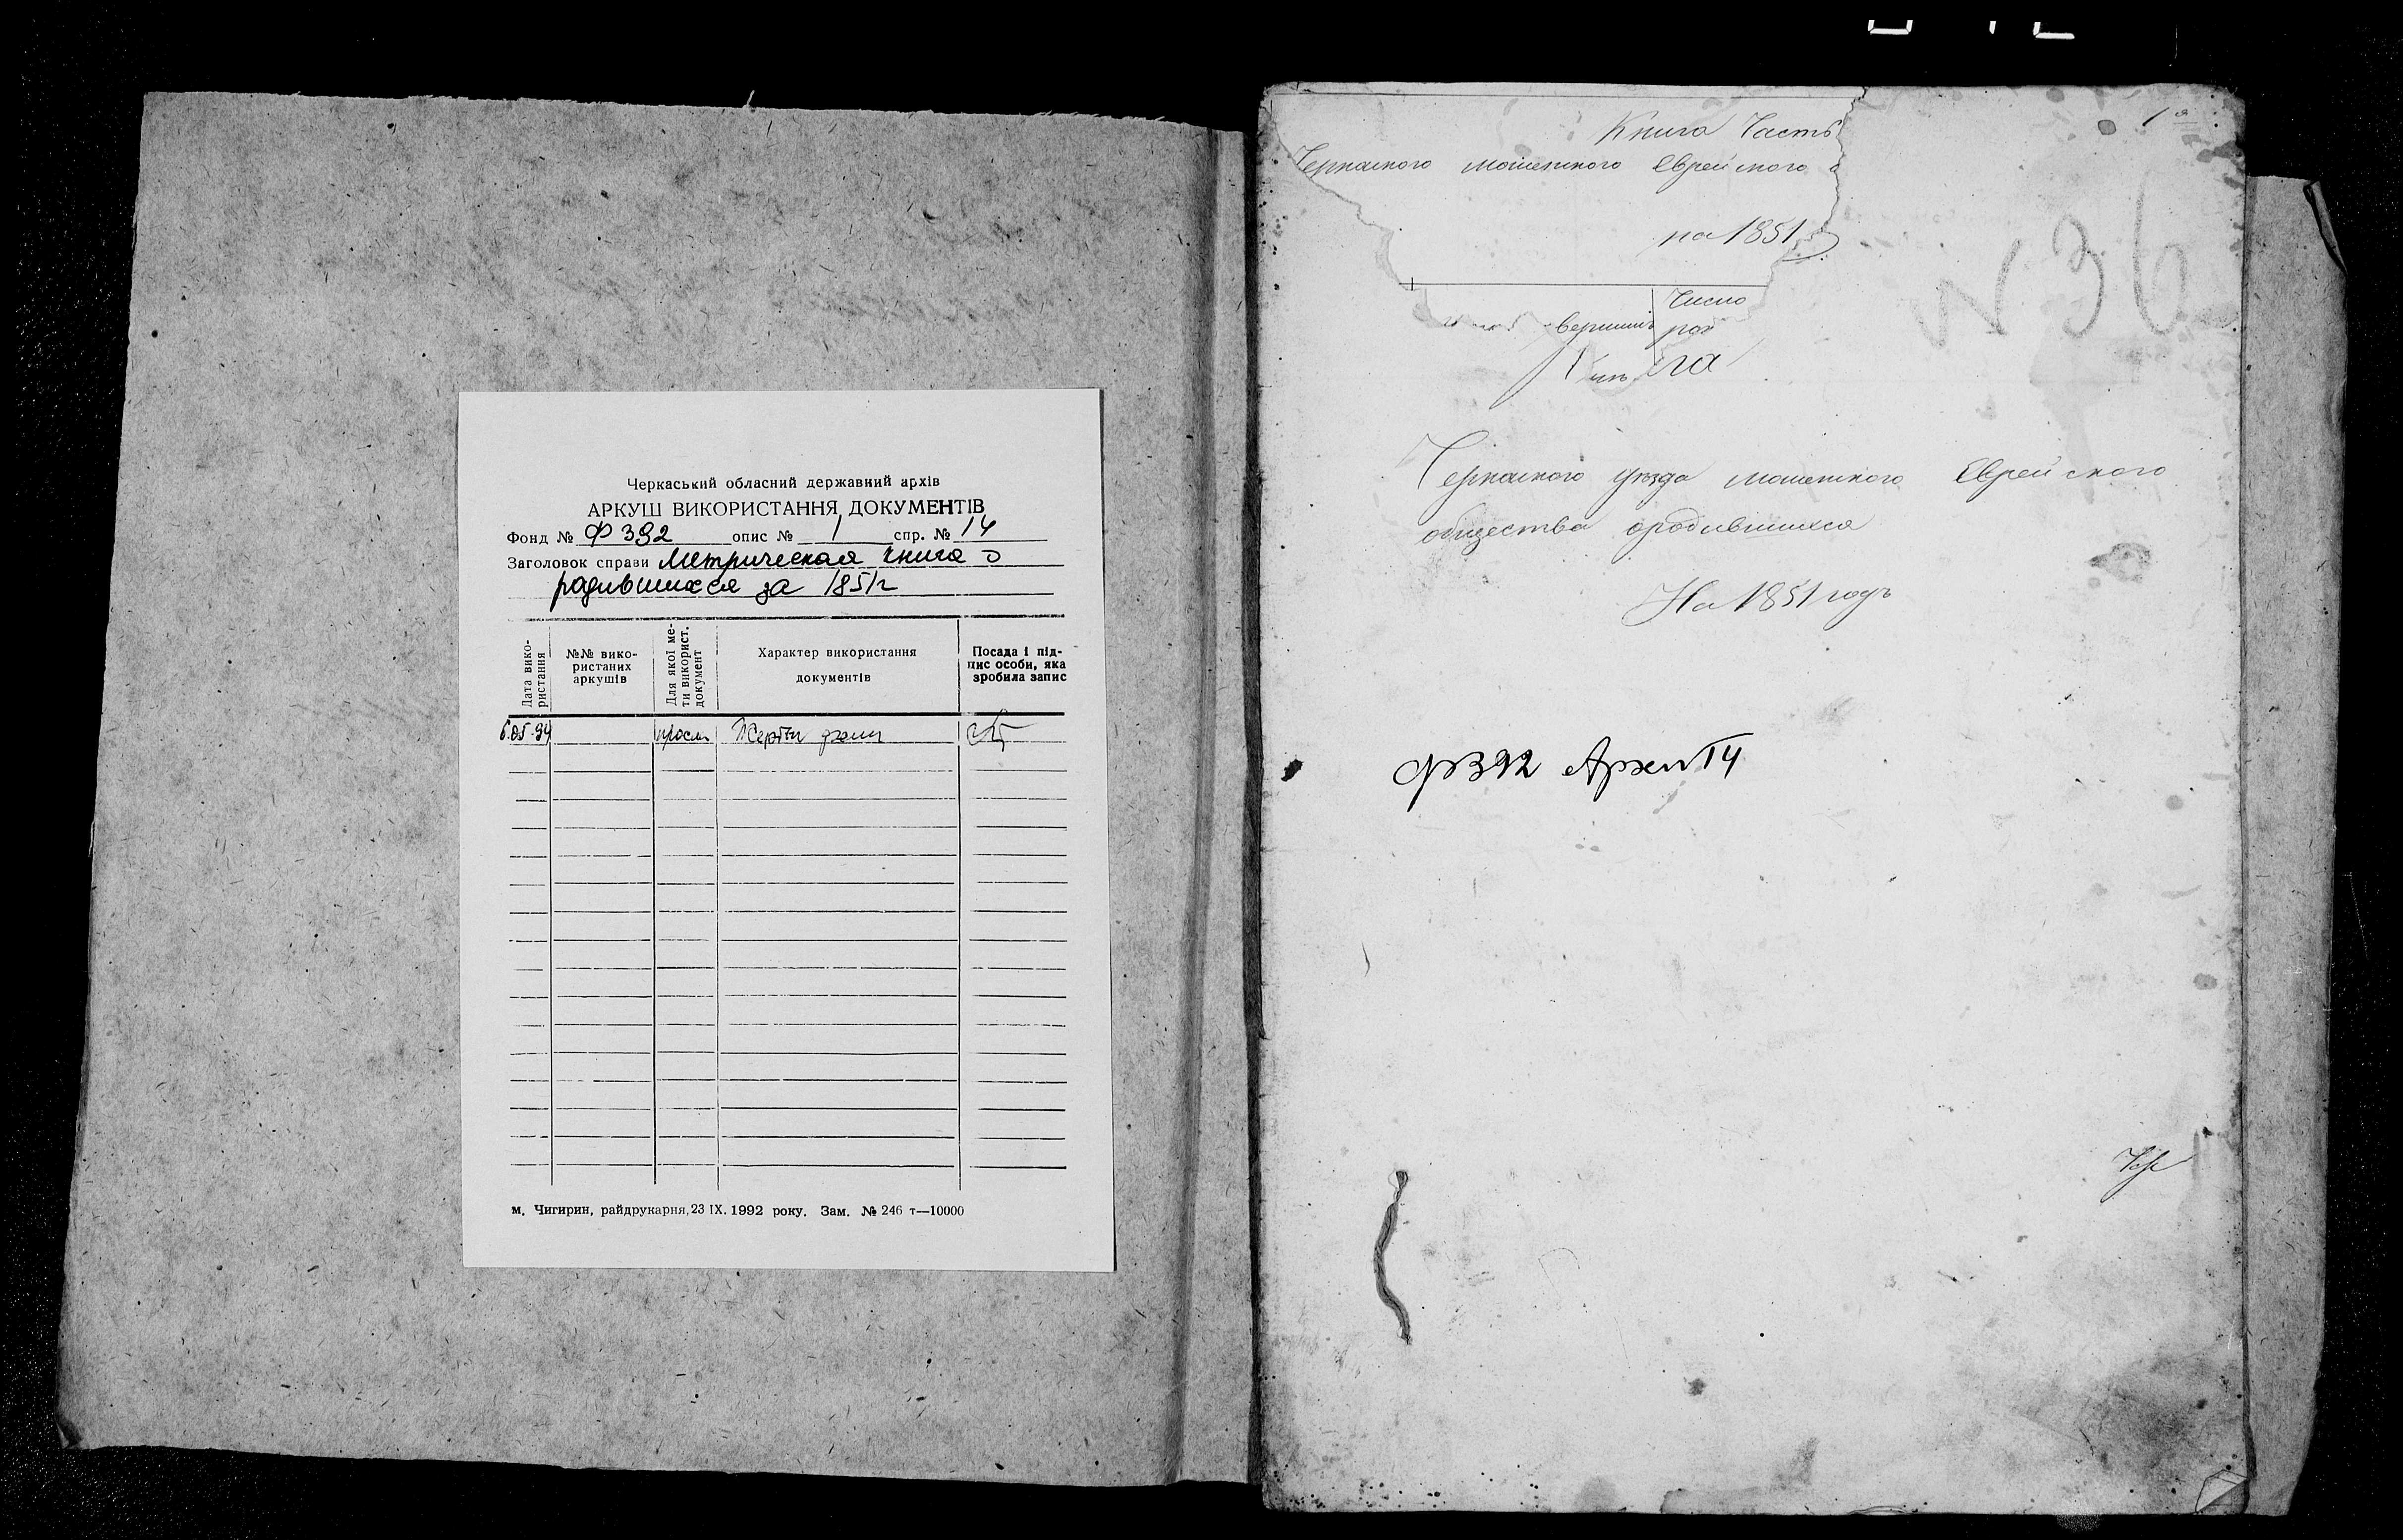 Черкаський обласний державний архів
АРКУШ ВИКОРИСТАННЯ ДОКУМЕНТІВ
Фонд № Ф 392 опис № 1 спр. № 14
Заголовок справи Метрическая книга о
родившихся за 1851г
Дата вико-
ристання
№№ вико-
ристаних
аркушів
Для якої ме-
ти використ.
документ
Характер використання
документів
Посада і під-
пис особи, яка
зробила запис
6.05.94 просм
м. Чигирин, райдрукарня, 23 IX. 1992 року. Зам. № 246 т—10000
Книга Часть
Черкаского мошенского Еврейского
на 1851
Число
N 36
Черкаского уезда мошенского Еврейского
общества ородившихся
На 1851 годъ
Ф392 Архи 14